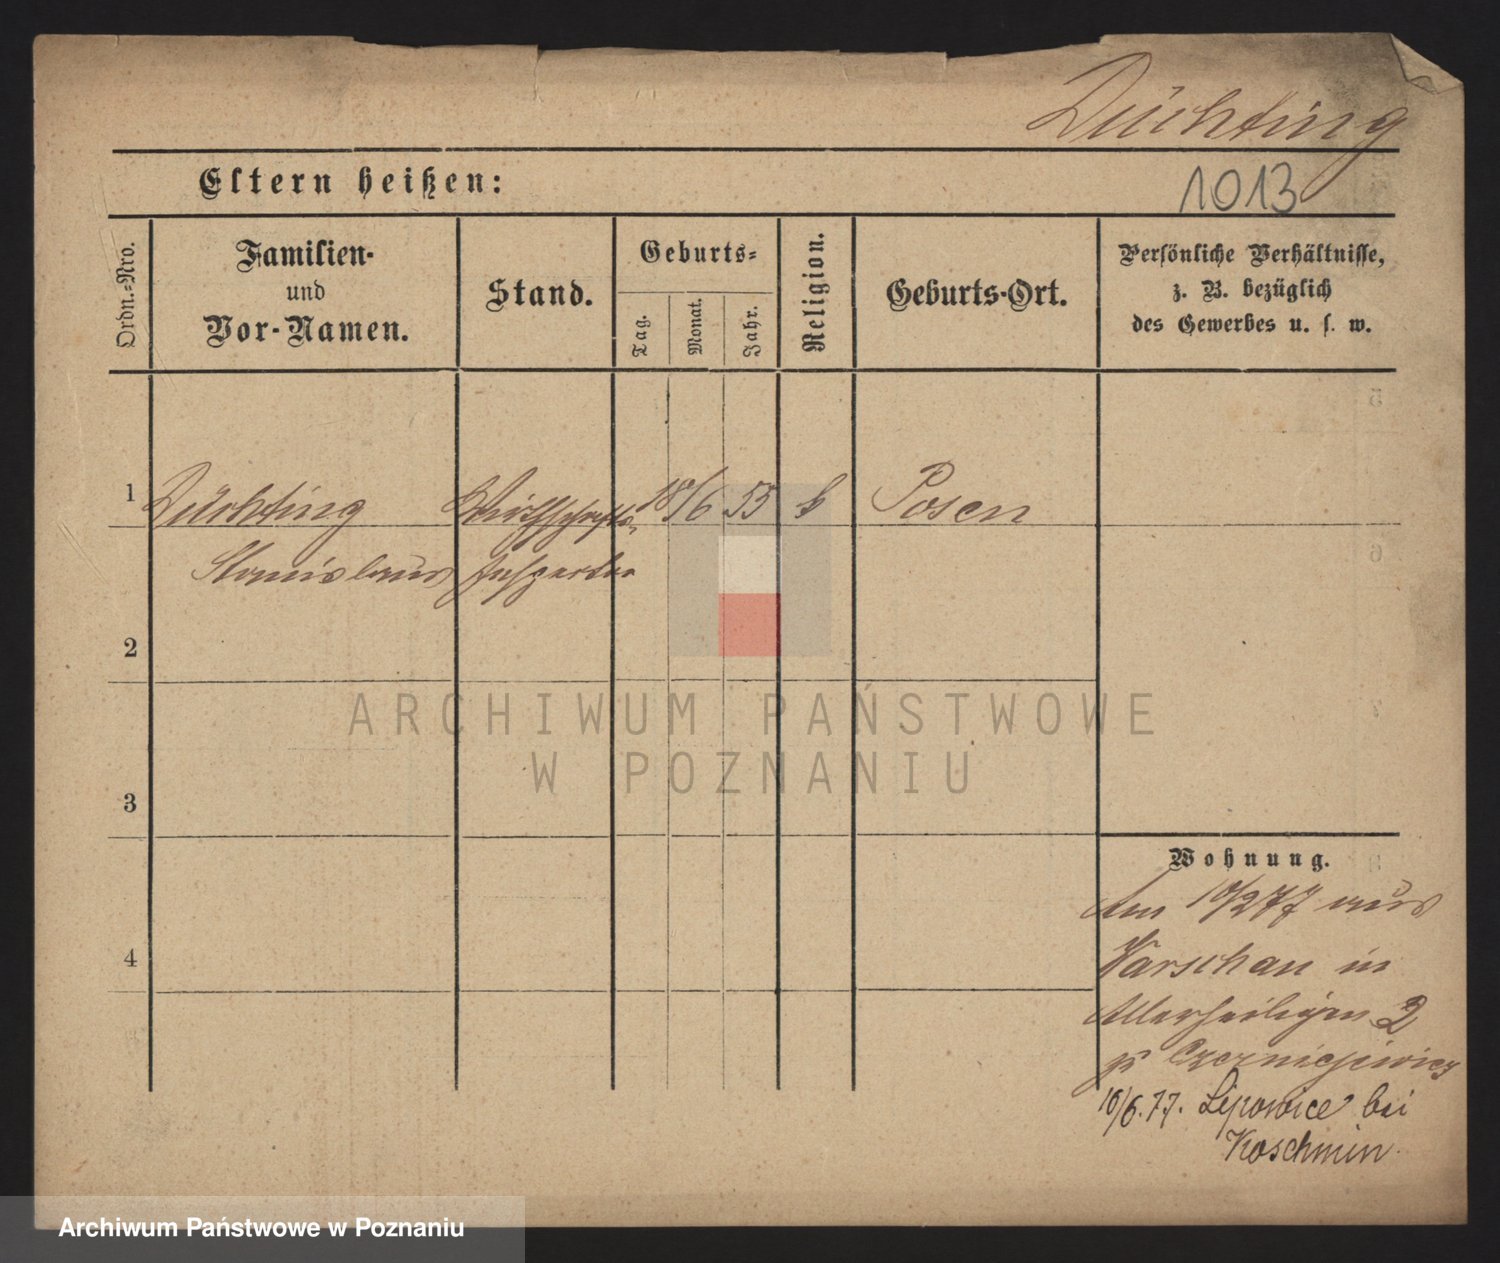 Düchting
Eltern heißen:
1013
Ordn.-Nro.
Familien-
und
Vor-Namen.
Stand.
Geburts-
Tag.
Monat.
Jahr.
Religion.
Geburts-Ort.
Persönliche Verhältnisse,
z. B. bezüglich
des Gewerbes u. s. w.
1 Düchting Wirthschafts- 18/6 55 k Posen
Stanislaus Inspector
2
3
4
Wohnung.
Am 10/2 77 aus
Warschau in
Allerheiligen 2
Czerniejewicz
10/6.77. Lipowice bei
Koschmin.
ARCHIWUM PAŃSTWOWE
W POZNANIU
Archiwum Państwowe w Poznaniu